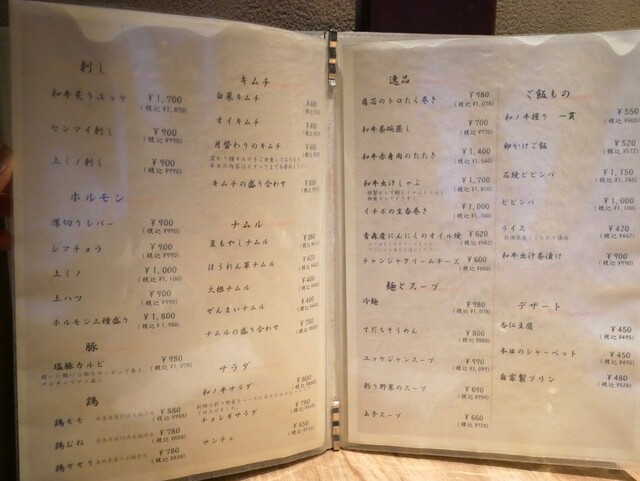 刺し
和牛炙りユッケ ¥1,700
(税込 ¥1,870)
センマイ刺し ¥900
(税込 ¥990)
上ミノ刺し ¥900
(税込 ¥990)
ホルモン
厚切りレバー ¥900
(税込 ¥990)
シマチョウ ¥900
(税込 ¥990)
上ミノ ¥1,000
(税込 ¥1,100)
上ハツ ¥900
(税込 ¥990)
ホルモン三種盛り ¥1,800
(税込 ¥1,980)
豚
塩豚カルビ ¥980
(税込 ¥1,078)
鶏
鶏モモ ¥880
(税込 ¥968)
鶏むね ¥780
(税込 ¥858)
鶏セセリ ¥780
(税込 ¥858)
キムチ
白菜キムチ
オイキムチ
月替わりのキムチ
キムチの盛り合わせ
ナムル
豆もやしナムル
ほうれん草ナムル
大根ナムル
ぜんまいナムル
ナムルの盛り合わせ ¥780
サラダ
和ノ牛サラダ
チョレギサラダ ¥780
サンチュ ¥650
逸品
¥980
(税込 ¥1,078)
和牛茶碗蒸し ¥700
(税込 ¥770)
和牛赤身肉のたたき ¥1,400
(税込 ¥1,540)
和牛出汁しゃぶ ¥1,700
(税込 ¥1,870)
イチボの生春巻き ¥1,000
(税込 ¥1,100)
青森産にんにくのオイル焼 ¥620
(税込 ¥682)
チャンジャクリームチーズ ¥600
(税込 ¥660)
麺とスープ
冷麺 ¥980
(税込 ¥1,078)
すだちそうめん ¥800
(税込 ¥880)
ユッケジャンスープ ¥990
彩り野菜のスープ ¥690
(税込 ¥759)
玉子スープ ¥660
(税込 ¥726)
ご飯もの
和ノ牛握り 一貫 ¥550
(税込 ¥605)
卵かけご飯 ¥520
(税込 ¥572)
石焼ビビンバ ¥1,150
(税込 ¥1,265)
ビビンバ ¥1,000
(税込 ¥1,100)
ライス ¥420
(税込 ¥462)
和牛出汁茶漬け ¥900
(税込 ¥990)
デザート
杏仁豆腐 ¥450
(税込 ¥495)
本日のシャーベット ¥450
(税込 ¥495)
自家製プリン ¥480
(税込 ¥528)